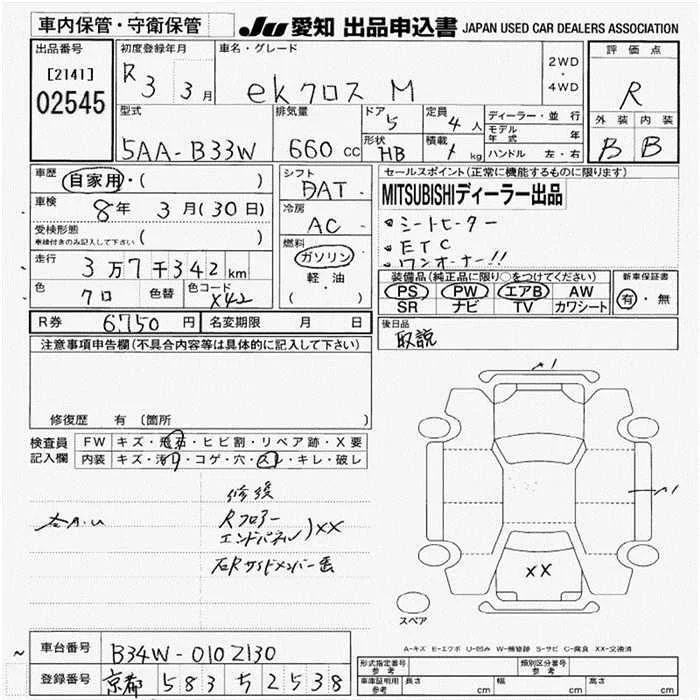 車内保管・守衛保管
JU 愛知 出品申込書 JAPAN USED CAR DEALERS ASSOCIATION
出品番号 初度登録年月 車名・グレード 評価点
[2141] R 3 3月 ekクロス M 2WD・4WD R
02545 型式 排気量 ドア 5 定員 4人 ディーラー・並行 外装 内装
5AA-B33W 660cc 形状 HB 積載 kg モデル年式 年 B B
ハンドル 左・右
車歴 自家用・( ) シフト DAT セールスポイント(正常に機能するものに限ります)
車検 8年 3月(30日) 冷房 AC MITSUBISHIディーラー出品
受検形態 車検付きのみ記入して下さい ( ) 燃料 シートヒーター
走行 3万7千342km ガソリン ETC
軽・油 ワンオーナー!!
色 クロ 色替 色コード X42 ( )
装備品(純正品に限り○をつけてください) 新車保証書
PS PW エアB AW 有・無
SR ナビ TV カワシート
R券 6,750円 名変期限 月 日 後日品
取説
注意事項申告欄(不具合内容等は具体的に記入して下さい)
修復歴 有 (箇所 )
検査員 FW キズ・飛石・ヒビ割・リペア跡・X要
記入欄 内装 キズ・汚れ・コゲ・穴・スレ・キレ・破レ
修復
Rフロアー
エンドパネル)XX
右Rサイドメンバー
XX
スペア
A-キズ E-エクボ U-凹み W-補修跡 S-サビ C-腐食 XX-交換済
車台番号 B34W-0102130
登録番号 京都 583 ち 2538
形式指定番号 参考 類別区分番号 参考
車庫証明用 参考 長さ cm 幅 cm 高さ cm